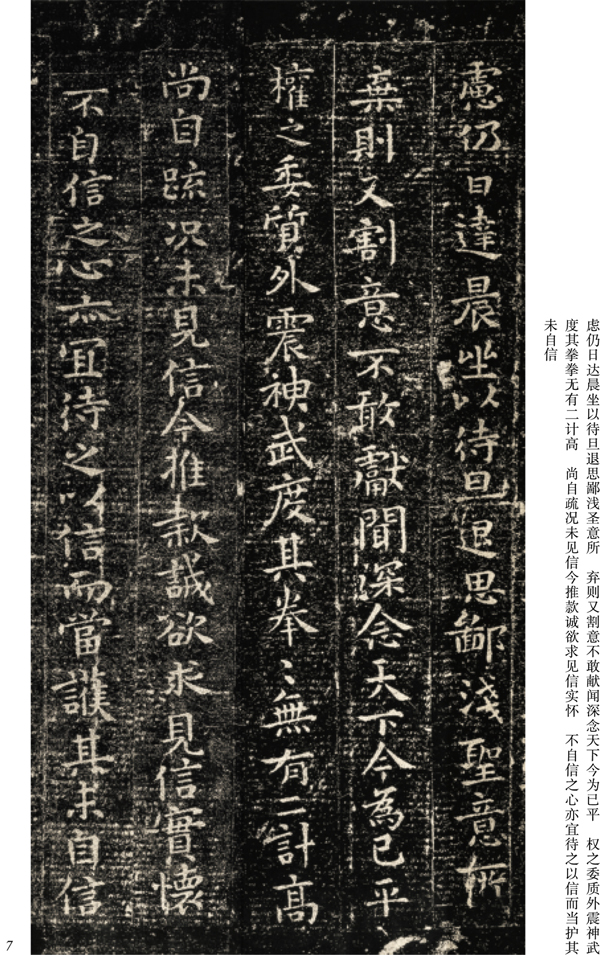 慮仍日達晨坐以待旦退思鄙淺聖意所
棄則又割意不敢獻聞深念天下今為已平
權之委質外震神武度其拳〻無有二計高
尚自疏況未見信今推款誠欲求見信實懷
不自信之心亦宜待之以信而當護其未自信
虑仍日达晨坐以待旦退思鄙浅圣意所 弃则又割意不敢献闻深念天下今为已平 权之委质外震神武
度其拳拳无有二计高 尚自疏况未见信今推款诚欲求见信实怀 不自信之心亦宜待之以信而当护其
未自信
7